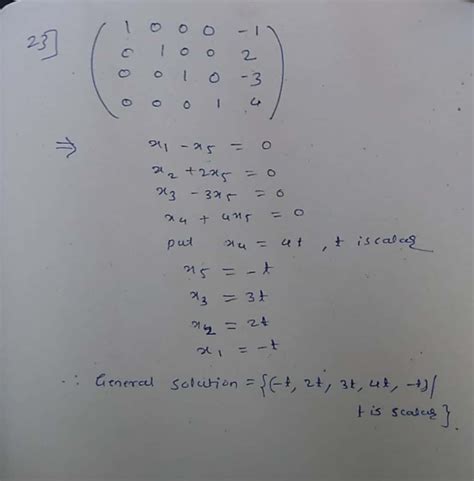 23]
1 0 0 0 -1
0 1 0 0 2
0 0 1 0 -3
0 0 0 1 4
⇒ x₁ - x₅ = 0
x₂ + 2x₅ = 0
x₃ - 3x₅ = 0
x₄ + 4x₅ = 0
put x₄ = 4t, t is scalar
x₅ = -t
x₃ = 3t
x₂ = 2t
x₁ = -t
∴ General solution = {(-t, 2t, 3t, 4t, -t)/
t is scalar}.